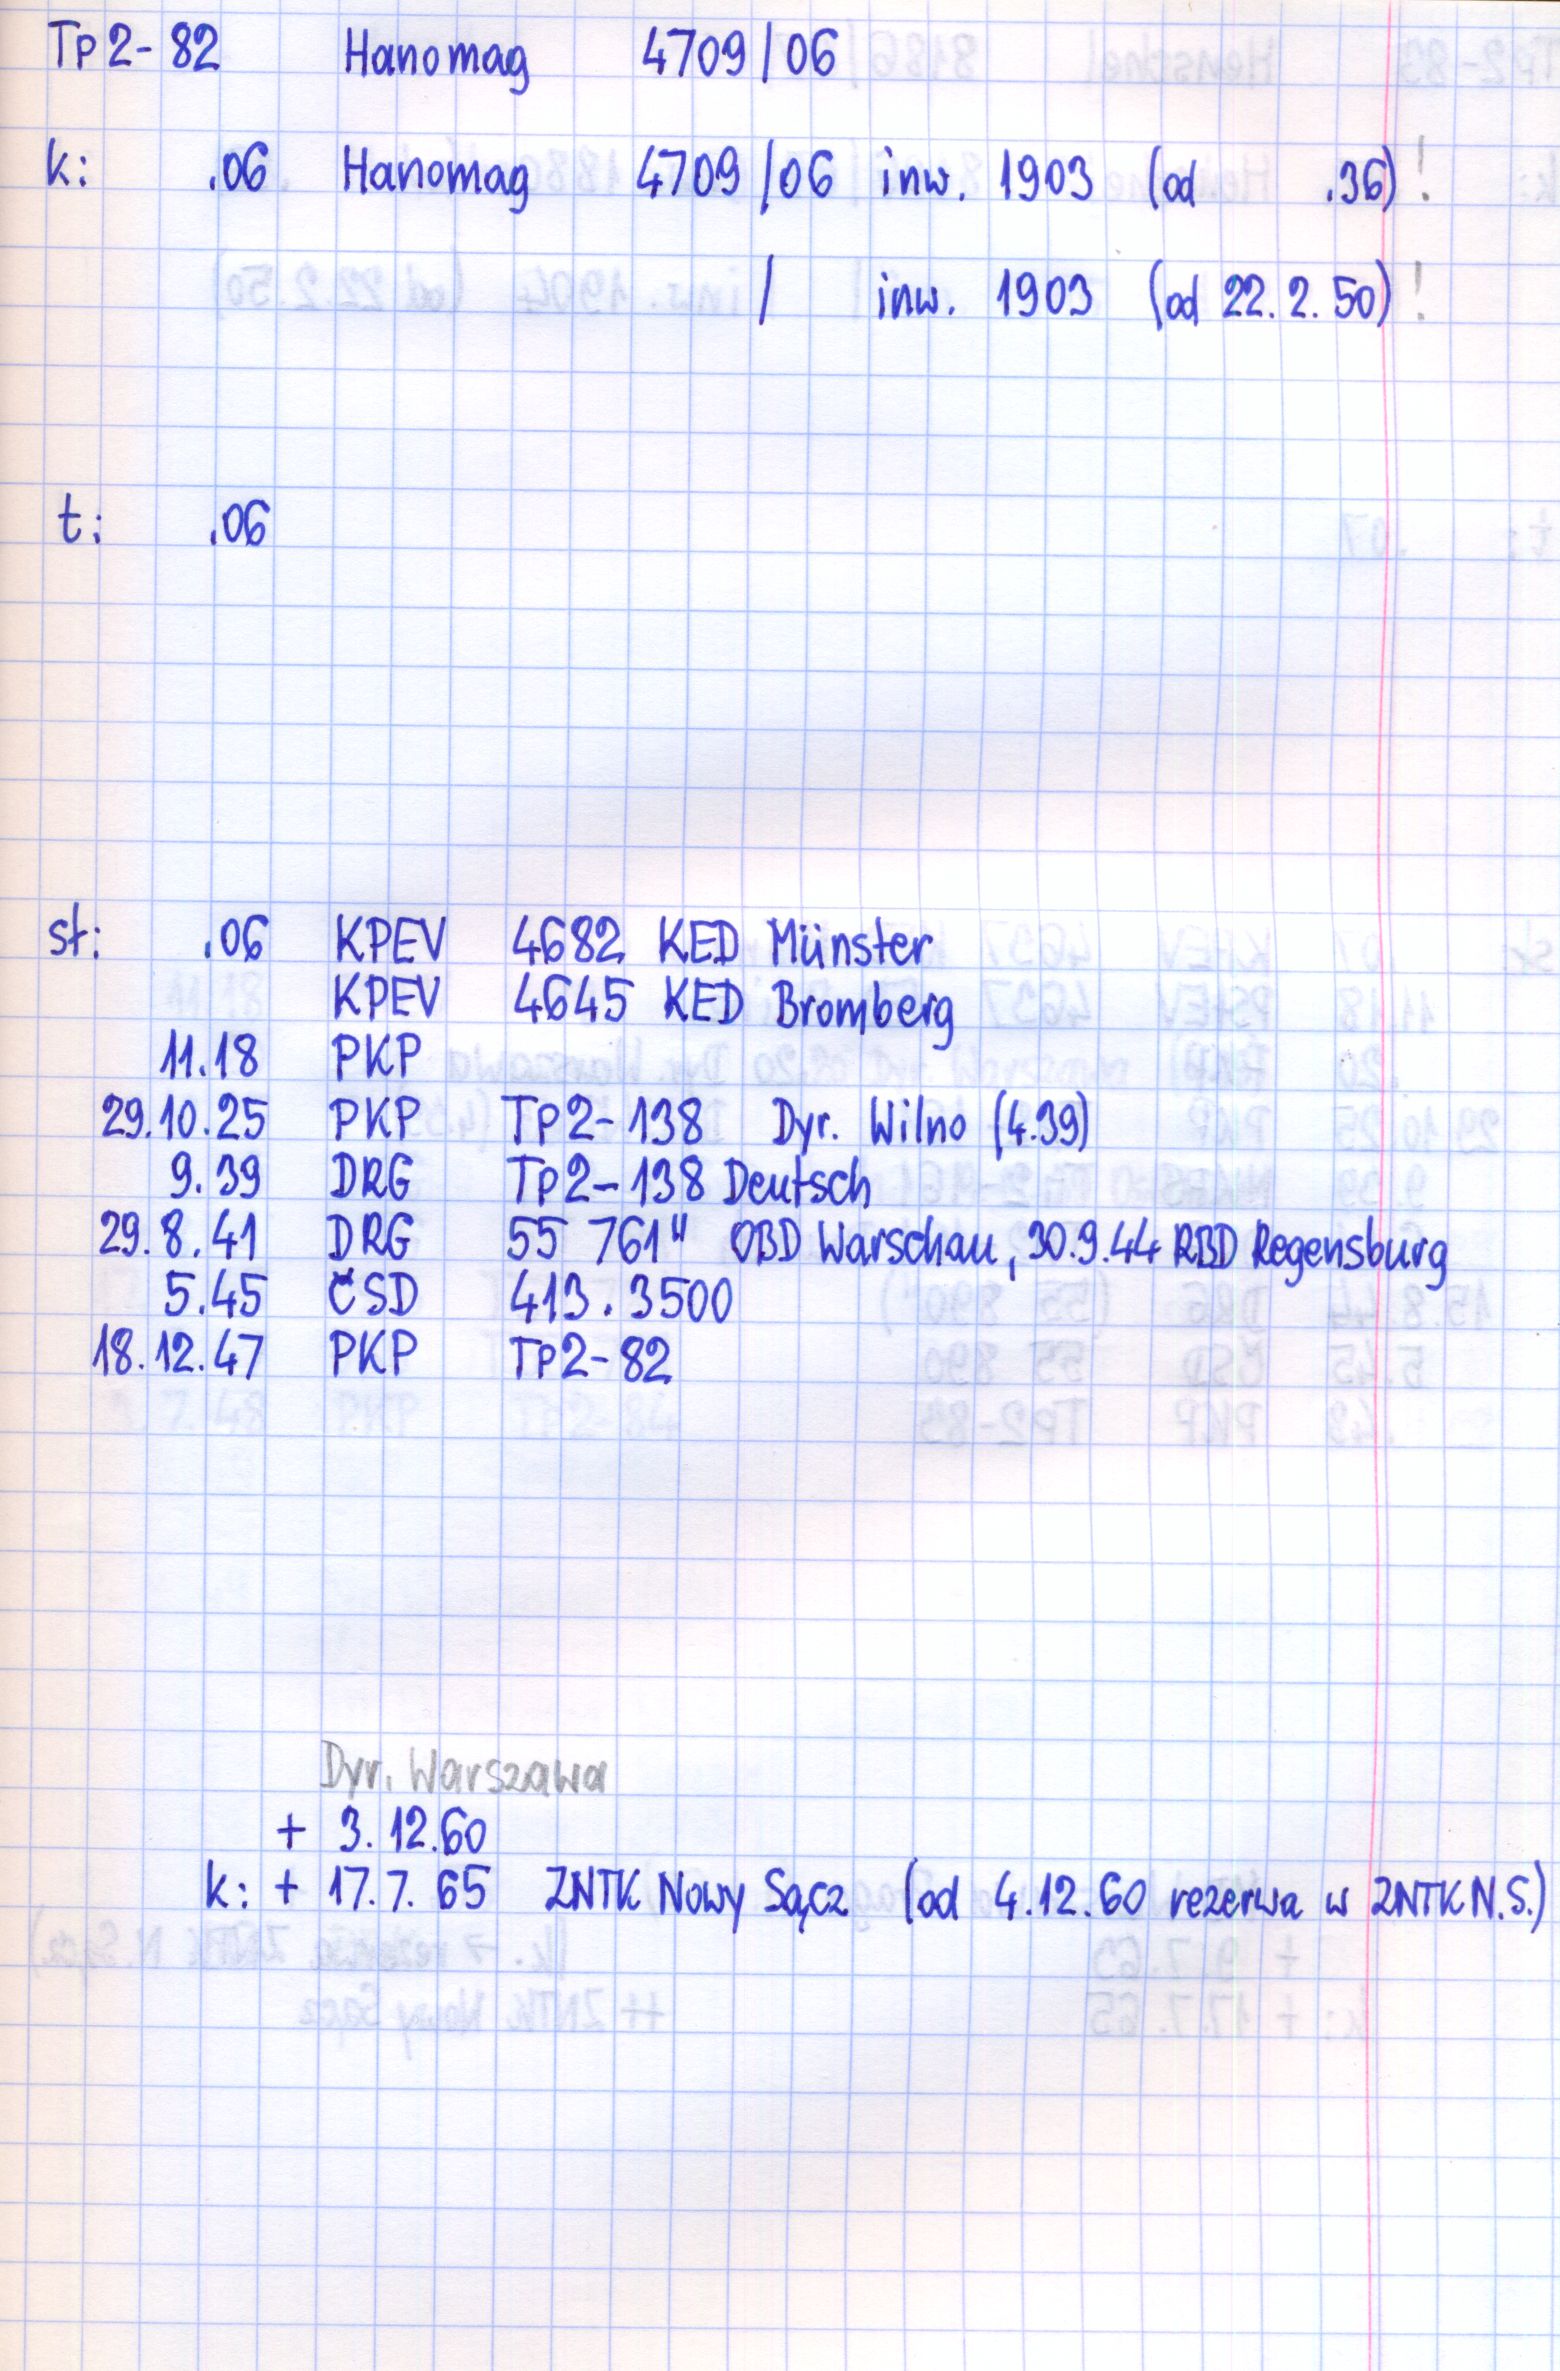 Tp2-82 Hanomag 4709/06
k: .06 Hanomag 4709/06 inw. 1903 (od .36)!
/ inw. 1903 (od 22.2.50)!
t: .06
st: .06 KPEV 4682 KED Münster
KPEV 4645 KED Bromberg
11.18 PKP
29.10.25 PKP Tp2-138 Dyr. Wilno (4.39)
9.39 DRG Tp2-138 Deutsch
29.8.41 DRG 55 761" OBD Warschau, 30.9.44 RBD Regensburg
5.45 ČSD 413.3500
18.12.47 PKP Tp2-82
Dyr. Warszawa
+ 3.12.60
k: + 17.7.65 ZNTK Nowy Sącz (od 4.12.60 rezerwa w ZNTK N.S.)